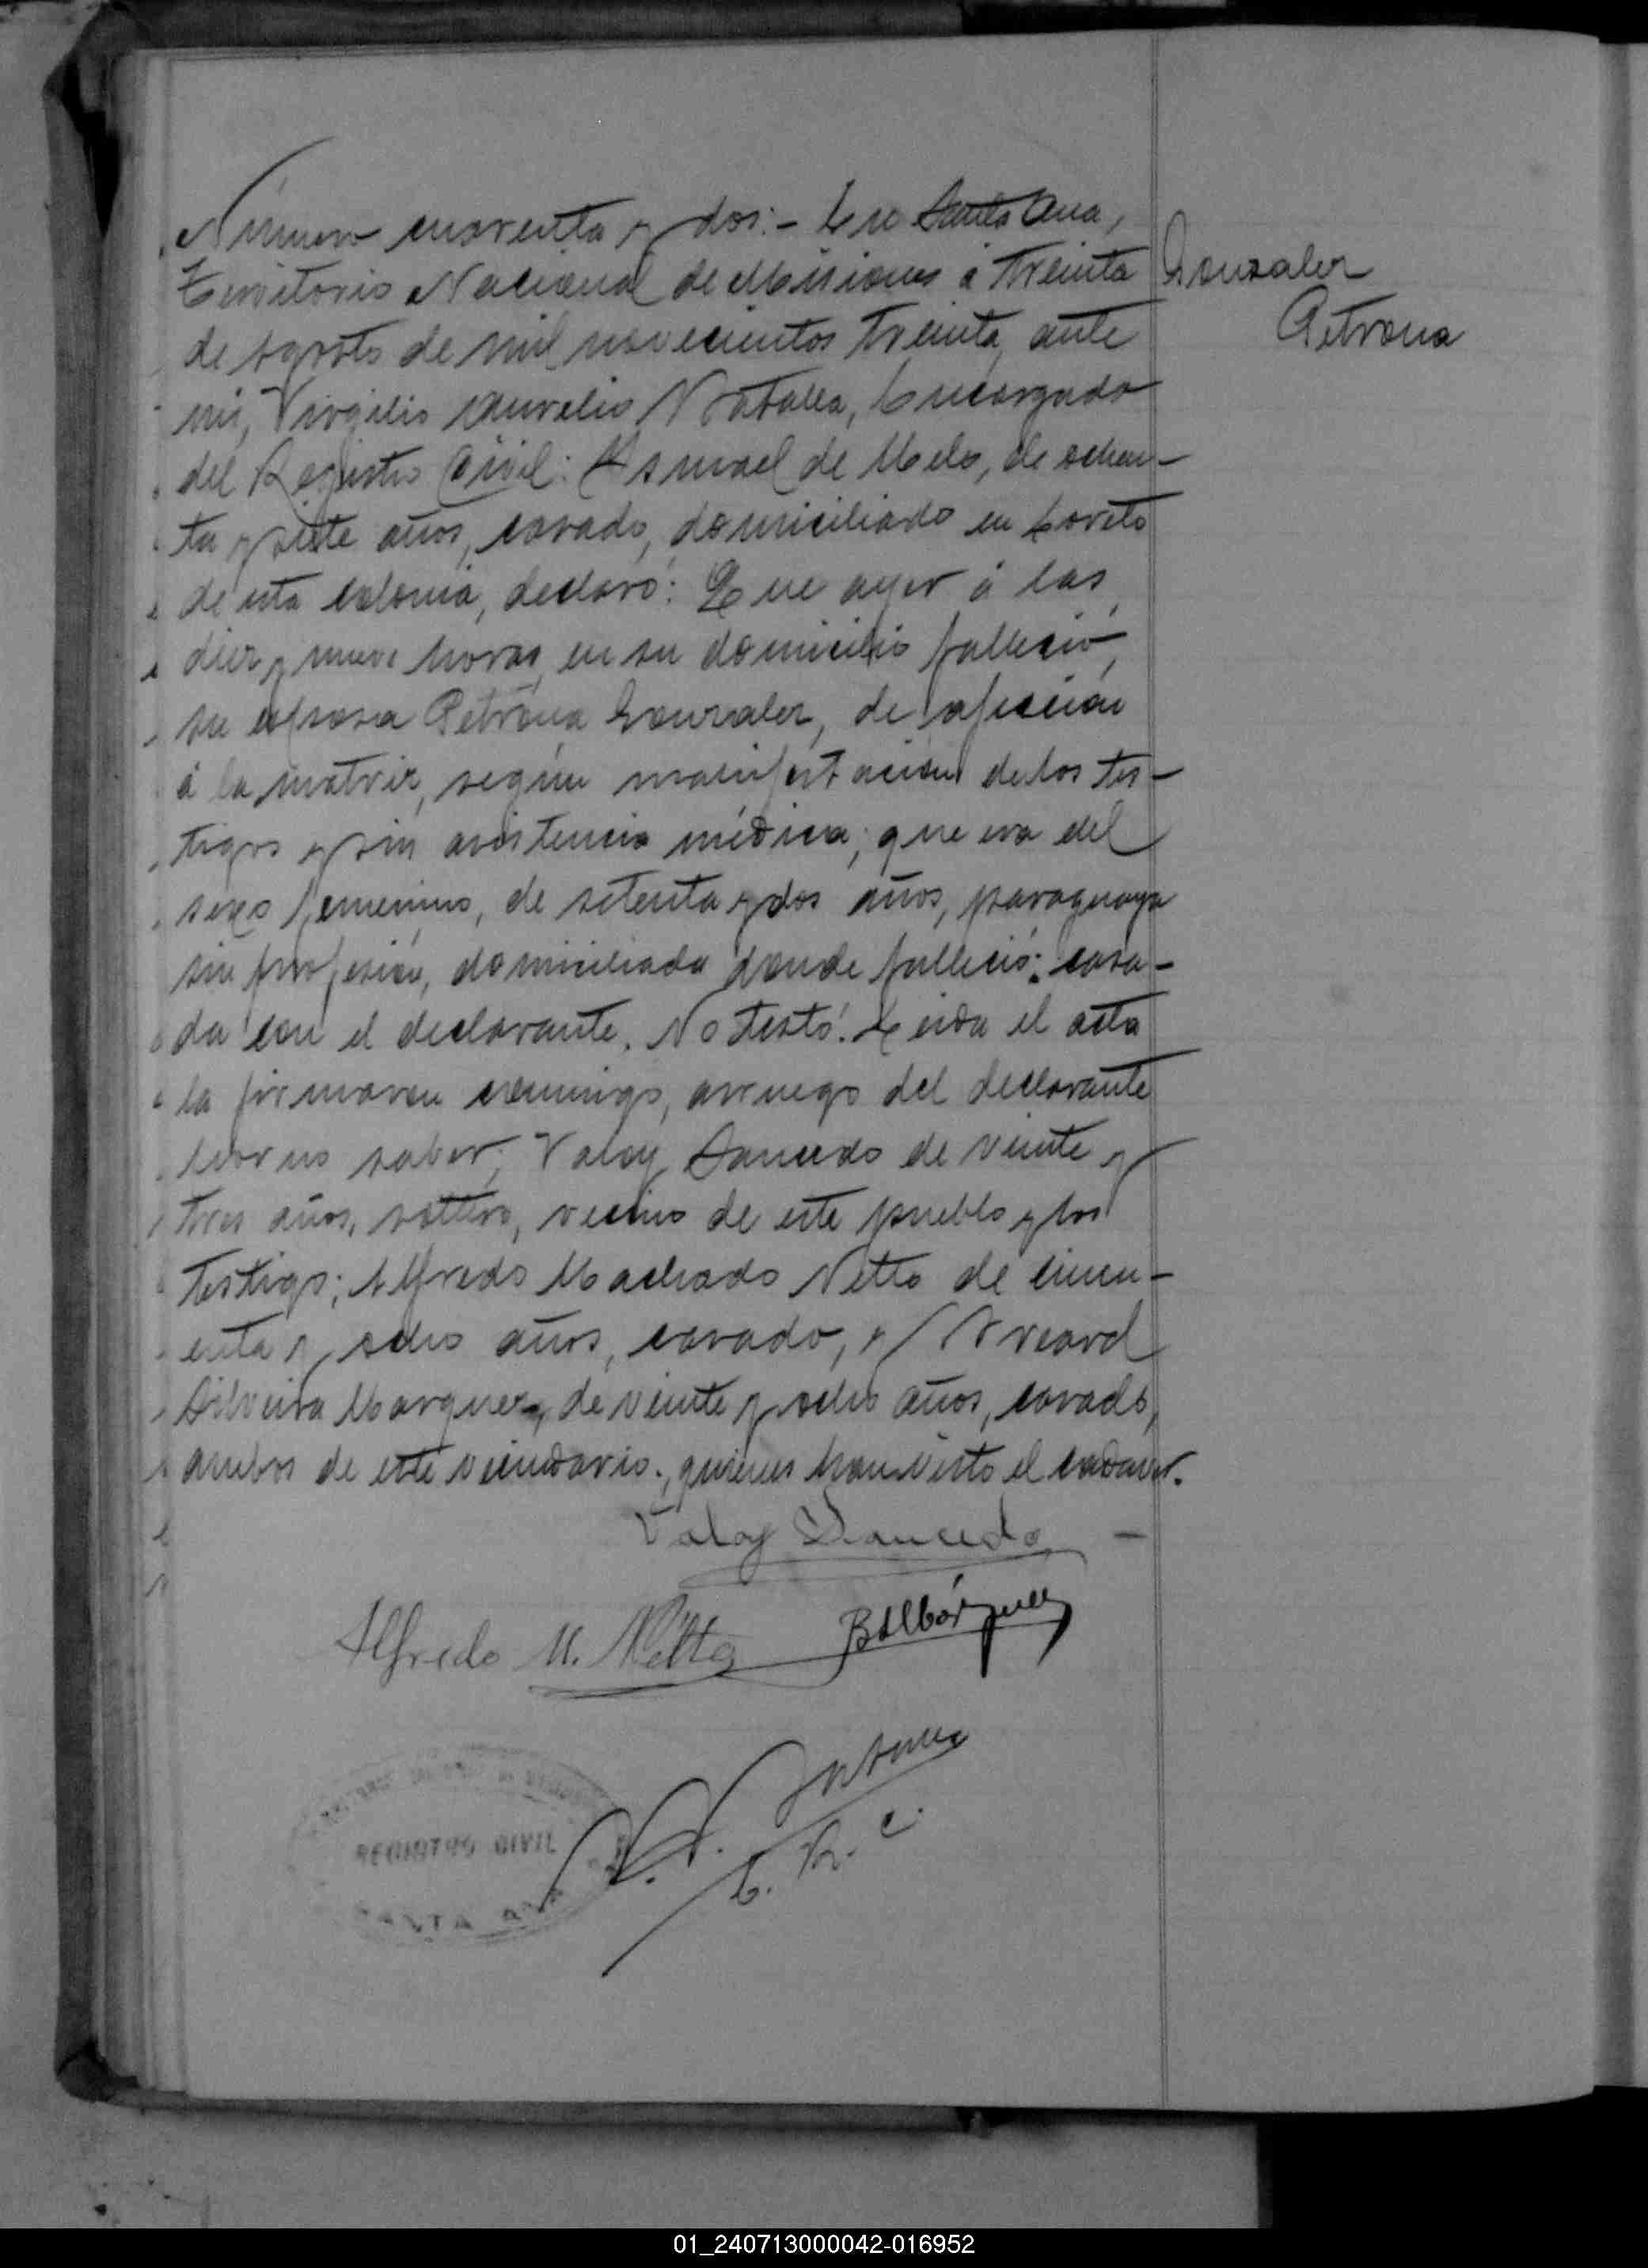 Número cuarenta y dos:- En Santa Ana,
Territorio Nacional de Misiones á treinta
de Agosto de mil novecientos treinta, ante
mí, Virgilio Aurelio Encargado
del Registro Civil: Ismael de Melo, de ochen-
ta y siete años, casado, domiciliado en Loreto
de esta colonia, declaró: Que ayer á las
diez y nueve horas, en su domicilio falleció,
su esposa Petrona Gonzalez, de afección
á la matriz, según manifestación de los tes-
tigos y sin asistencia médica; que era del
sexo femenino, de setenta y dos años, paraguaya
sin profesión, domiciliada donde falleció; casa-
da con el declarante. No testó. Leida el acta
la firmaron conmigo, arruego del declarante
por no saber, Valoy Saucedo de veinte y
tres años, soltero, vecino de este pueblo y los
testigos; Alfredo Machado Netto de cincu-
enta y ocho años, casado, y
Silveira Marquez, de veinte y ocho años, casado,
ambos de este vecindario, quienes han visto el cadaver.
Gonzalez
Petrona
Valoy Saucedo
Alfredo M. Netto
REGISTRO CIVIL
SANTA ANA
E. R. C.
01_240713000042-016952